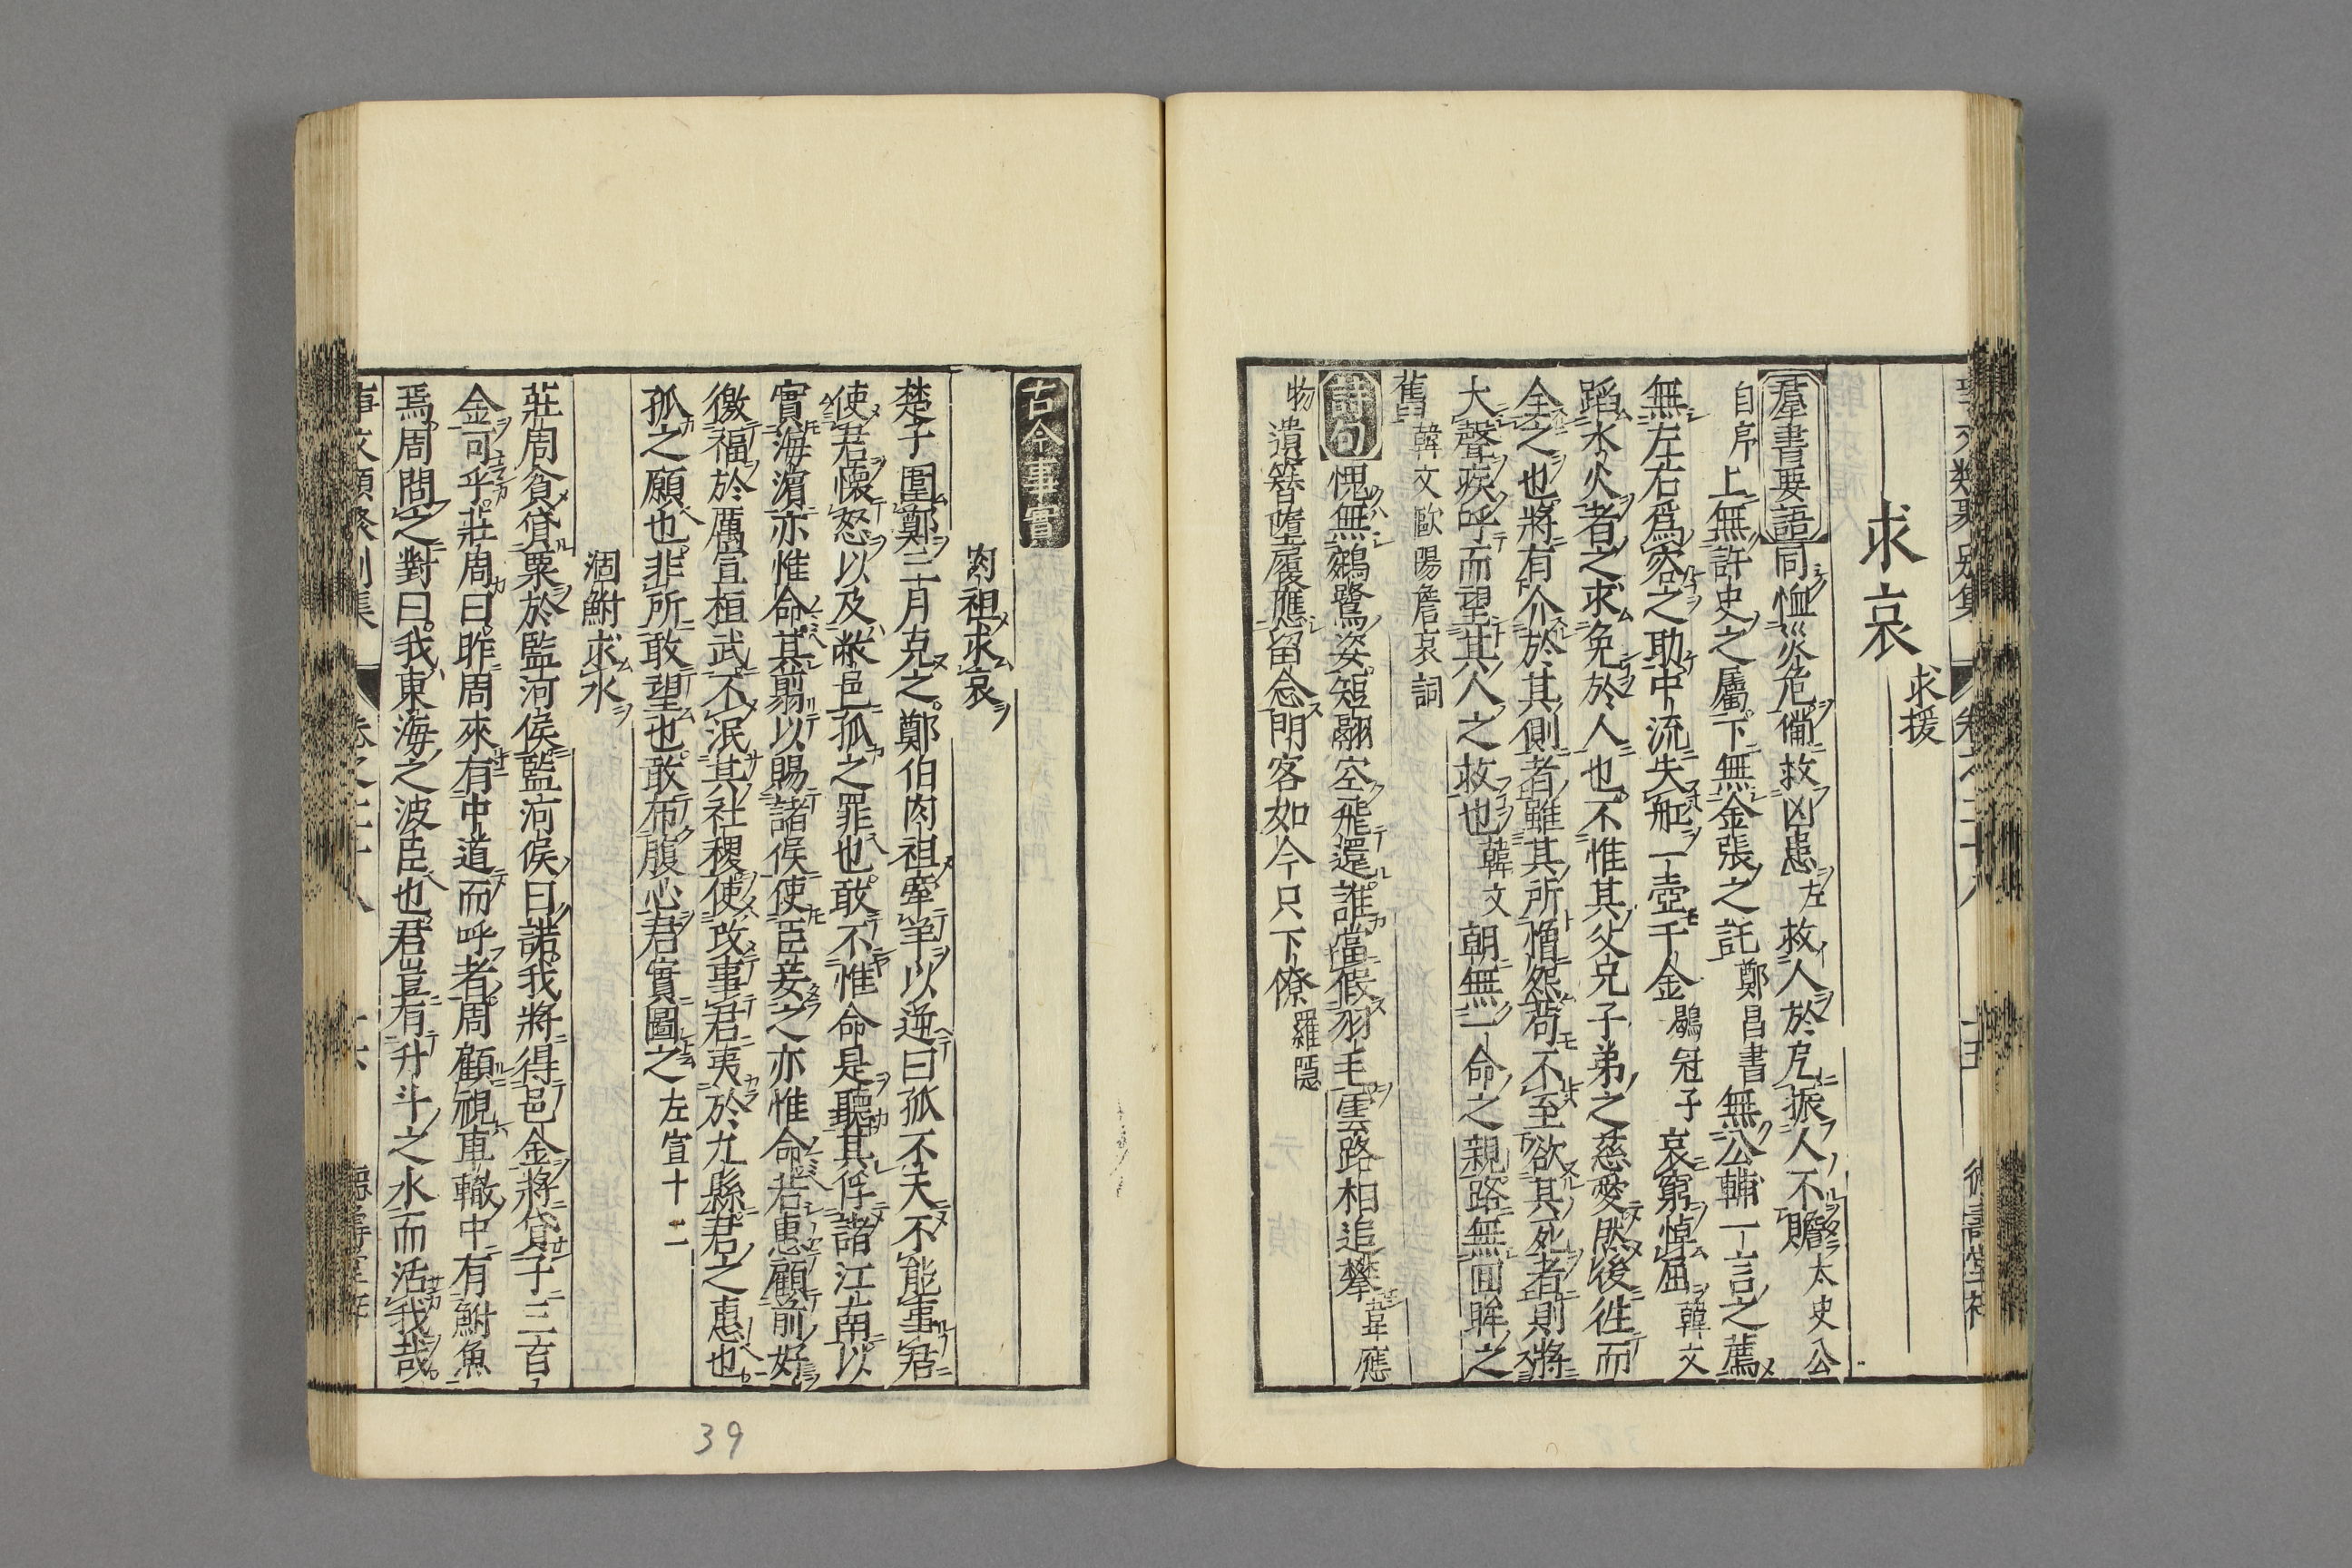 求哀
求援
羣書要語同恤災危備救凶患左救人於戹振人不贍太史公
自序上無許史之屬下無金張之託鄭昌書無公輔一言之薦
無左右爲容之助中流失舩一壺千金鶡冠子哀窮悼屈韓文
蹈水火者之求免於人也不惟其父兄子弟之慈愛然後徃而
全之也將有介於其側者雖其所憎怨苟不至欲其死者則將
大聲疾呼而望其人之救也韓文朝無一命之親路無回眸之
舊韓文歐陽詹哀詞
詩句愧無鵷鷺姿短翮空飛還誰當假羽毛雲路相追攀韋應
物遺簪墮履應留念門客如今只下僚羅隱
古今事實
肉袒求哀
楚子圍鄭三月克之鄭伯肉袒牽羊以逆曰孤不天不能事君
使君懷怒以及敝邑孤之罪也敢不惟命是聽其俘諸江南以
實海濵亦惟命其翦以賜諸侯使臣妾之亦惟命若惠顧前好
徼福於厲宣桓武不泯其社稷使攻事君夷於九縣君之惠也
孤之願也非所敢望也敢布腹心君實圖之左宣十二
涸鮒求水
莊周貧貸粟於監河侯監河侯曰諾我將得邑金將貸子三百
金可乎莊周曰昨周來有中道而呼者周顧視車轍中有鮒魚
焉周問之對曰我東海之波臣也君豈有升斗之水而活我哉